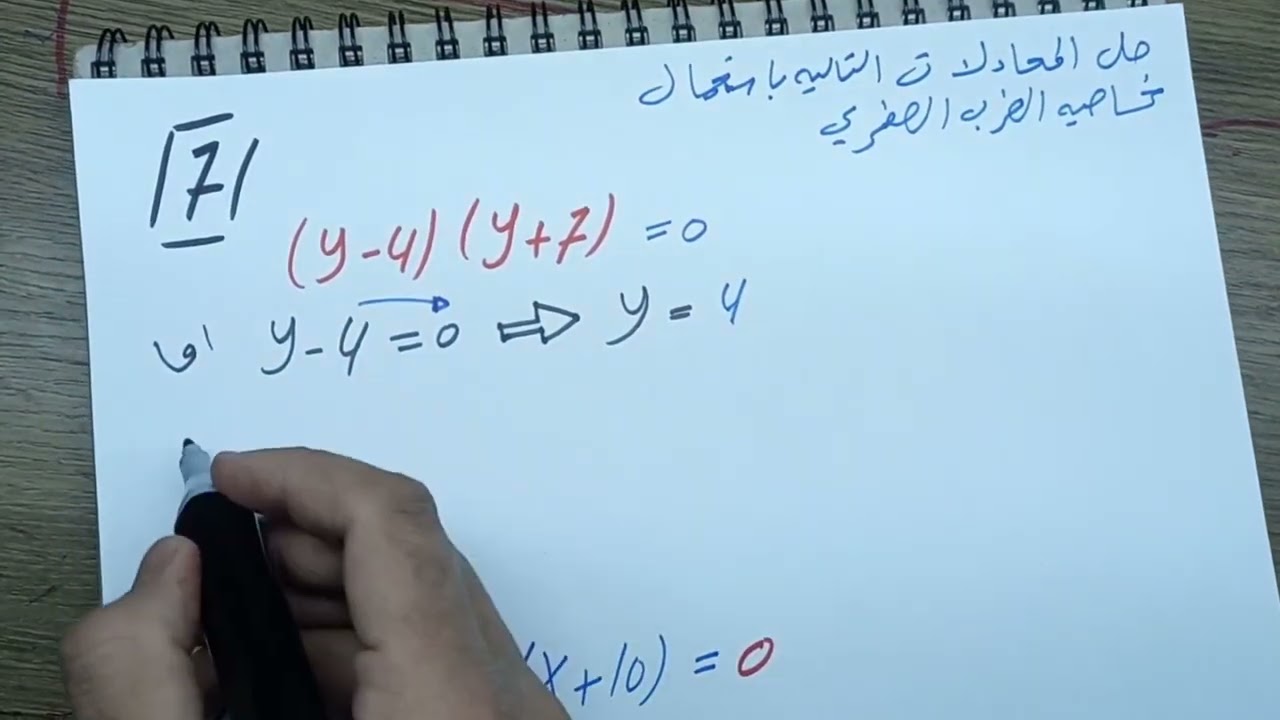 حل المعادلات التاليه باستعمال
خاصيه الضرب الصفري
7
(y-4)(y+7) = 0
اما y-4=0 ⇒ y = 4
(x+10) = 0